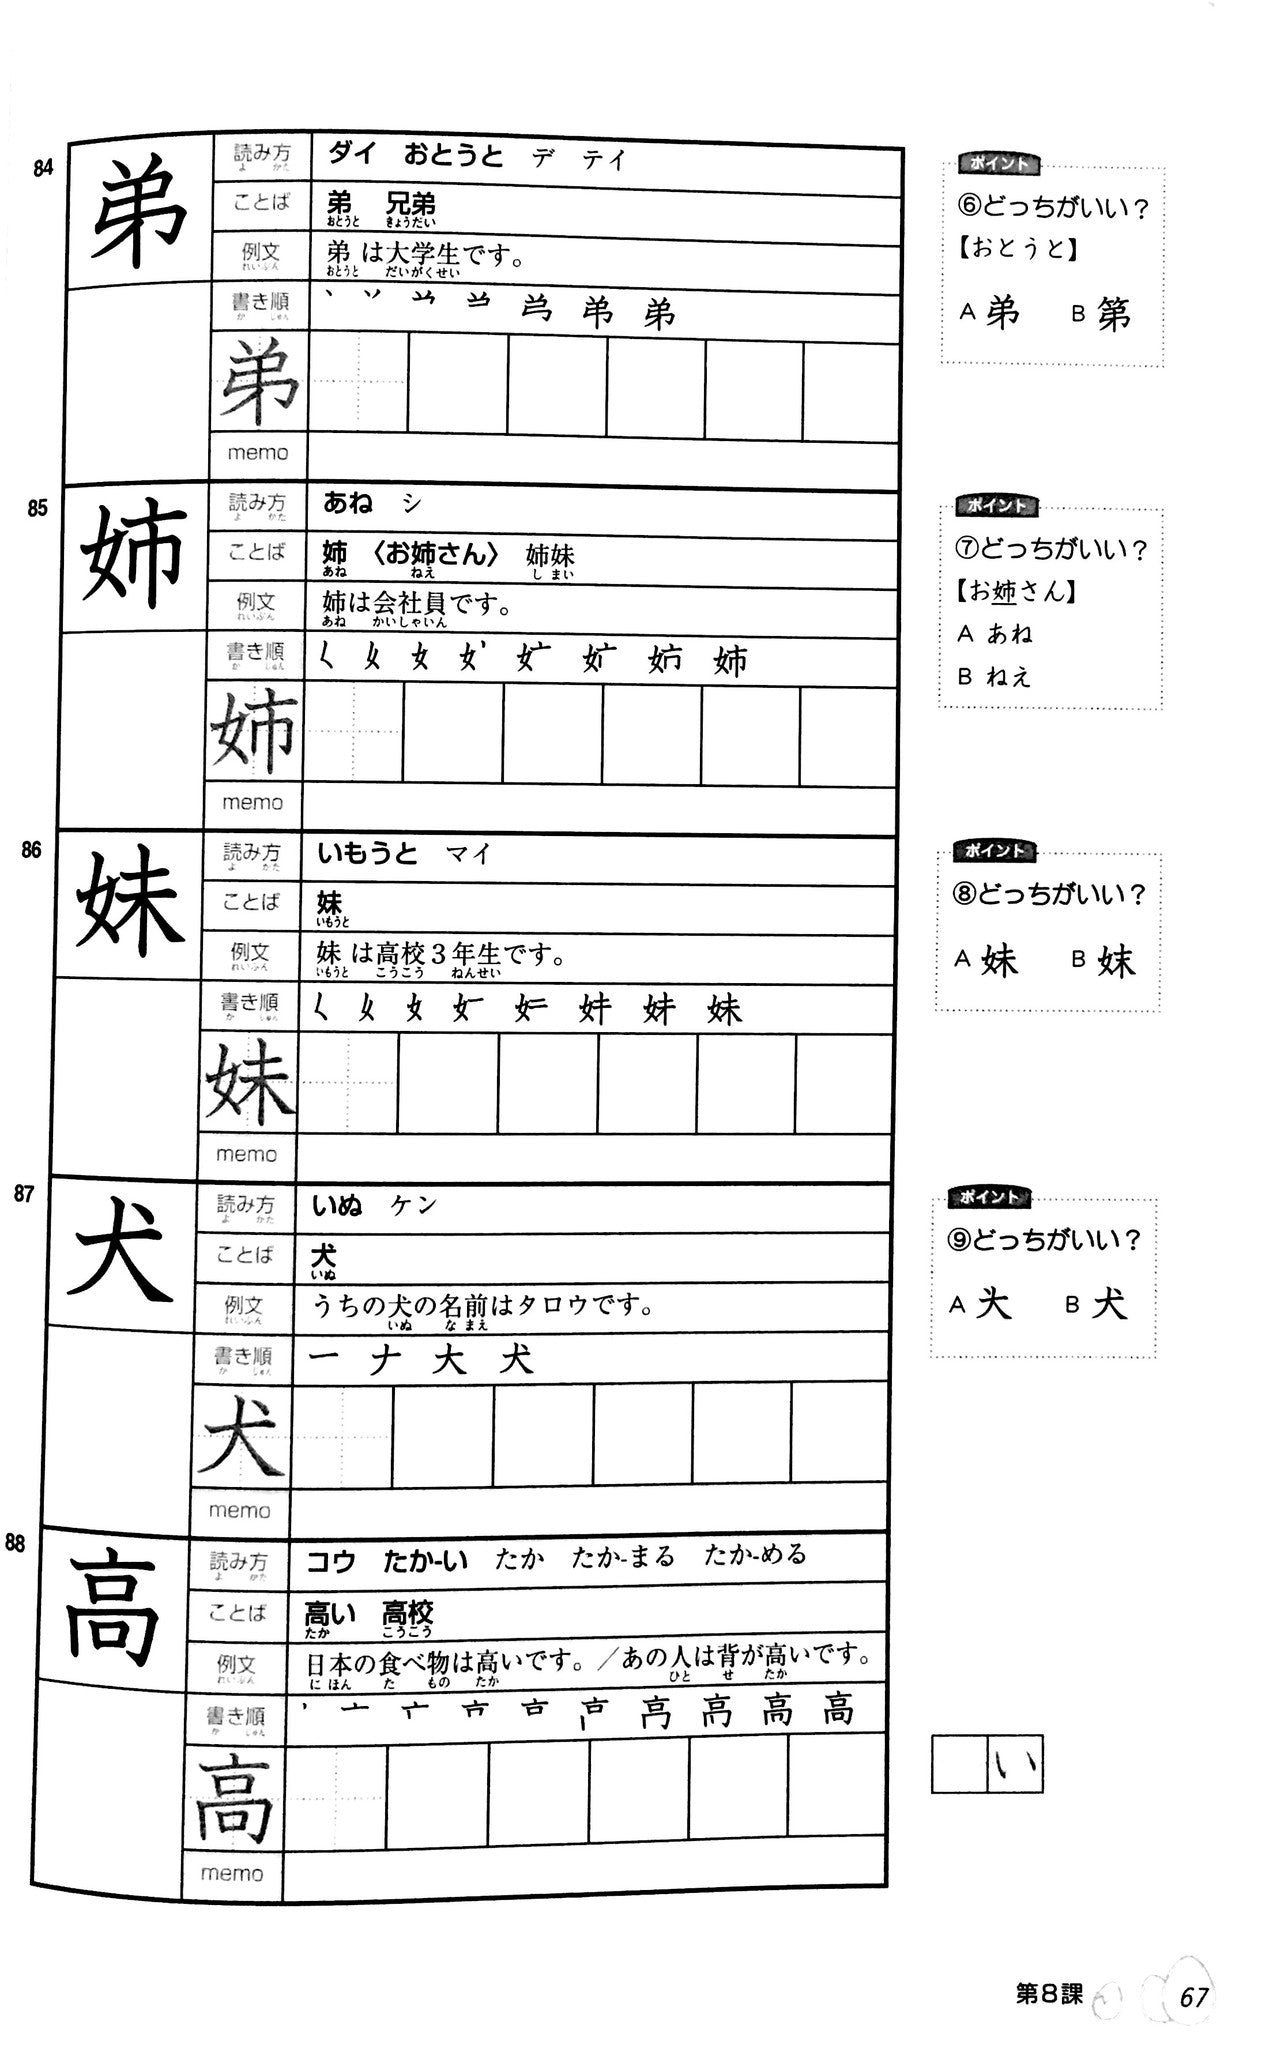 84
弟
読み方
よ かた
ダイ おとうと デ テイ
ことば
弟 兄弟
おとうと きょうだい
例文
れいぶん
弟は大学生です。
おとうと だいがくせい
書き順
か じゅん
弟 弟
弟
memo
ポイント
⑥どっちがいい?
【おとうと】
A 弟 B 第
85
姉
読み方
よ かた
あね シ
ことば
姉 〈お姉さん〉 姉妹
あね ねえ しまい
例文
れいぶん
姉は会社員です。
あね かいしゃいん
書き順
か じゅん
く 女 女 姉
姉
memo
ポイント
⑦どっちがいい?
【お姉さん】
A あね
B ねえ
86
妹
読み方
よ かた
いもうと マイ
ことば
妹
いもうと
例文
れいぶん
妹は高校3年生です。
いもうと こうこう ねんせい
書き順
か じゅん
く 女 女 妹 妹
妹
memo
ポイント
⑧どっちがいい?
A 妹 B 妺
87
犬
読み方
よ かた
いぬ ケン
ことば
犬
いぬ
例文
れいぶん
うちの犬の名前はタロウです。
いぬ なまえ
書き順
か じゅん
一 ナ 大 犬
犬
memo
ポイント
⑨どっちがいい?
A B 犬
88
高
読み方
よ かた
コウ たか-い たか たか-まる たか-める
ことば
高い 高校
たか こうこう
例文
れいぶん
日本の食べ物は高いです。/あの人は背が高いです。
にほん た もの たか ひと せ たか
書き順
か じゅん
高 高
高
memo
い
第8課
67